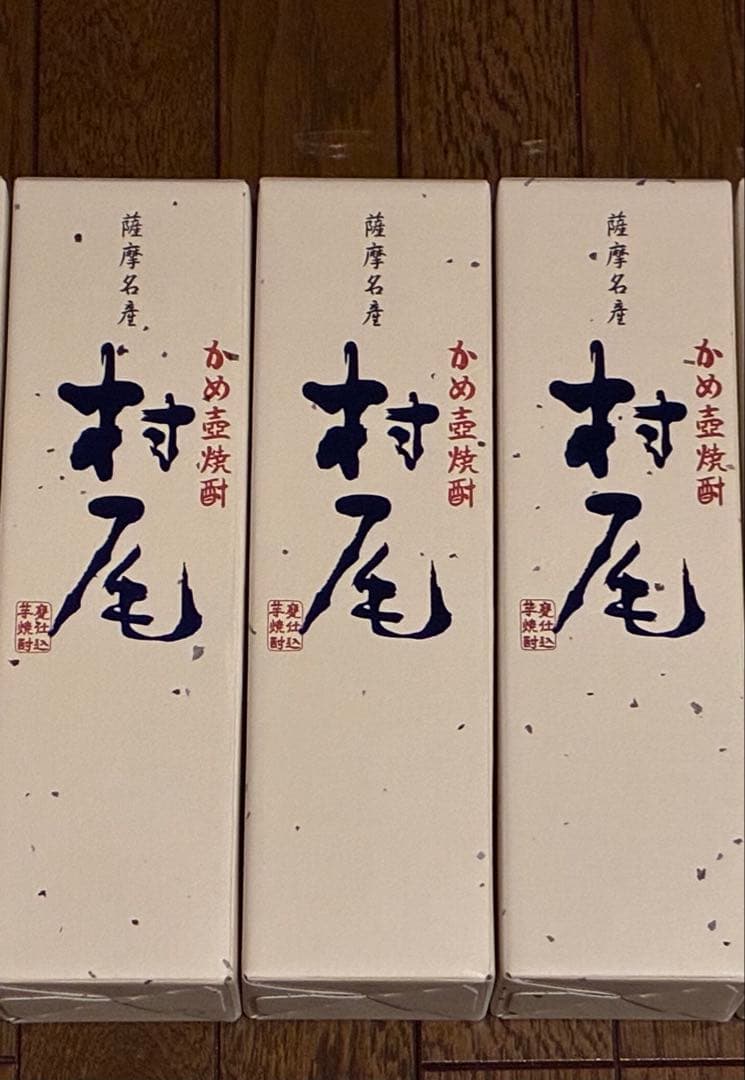 薩摩名産
かめ壺焼酎
村尾
甕仕込
芋焼酎
薩摩名産
かめ壺焼酎
村尾
甕仕込
芋焼酎
薩摩名産
かめ壺焼酎
村尾
甕仕込
芋焼酎